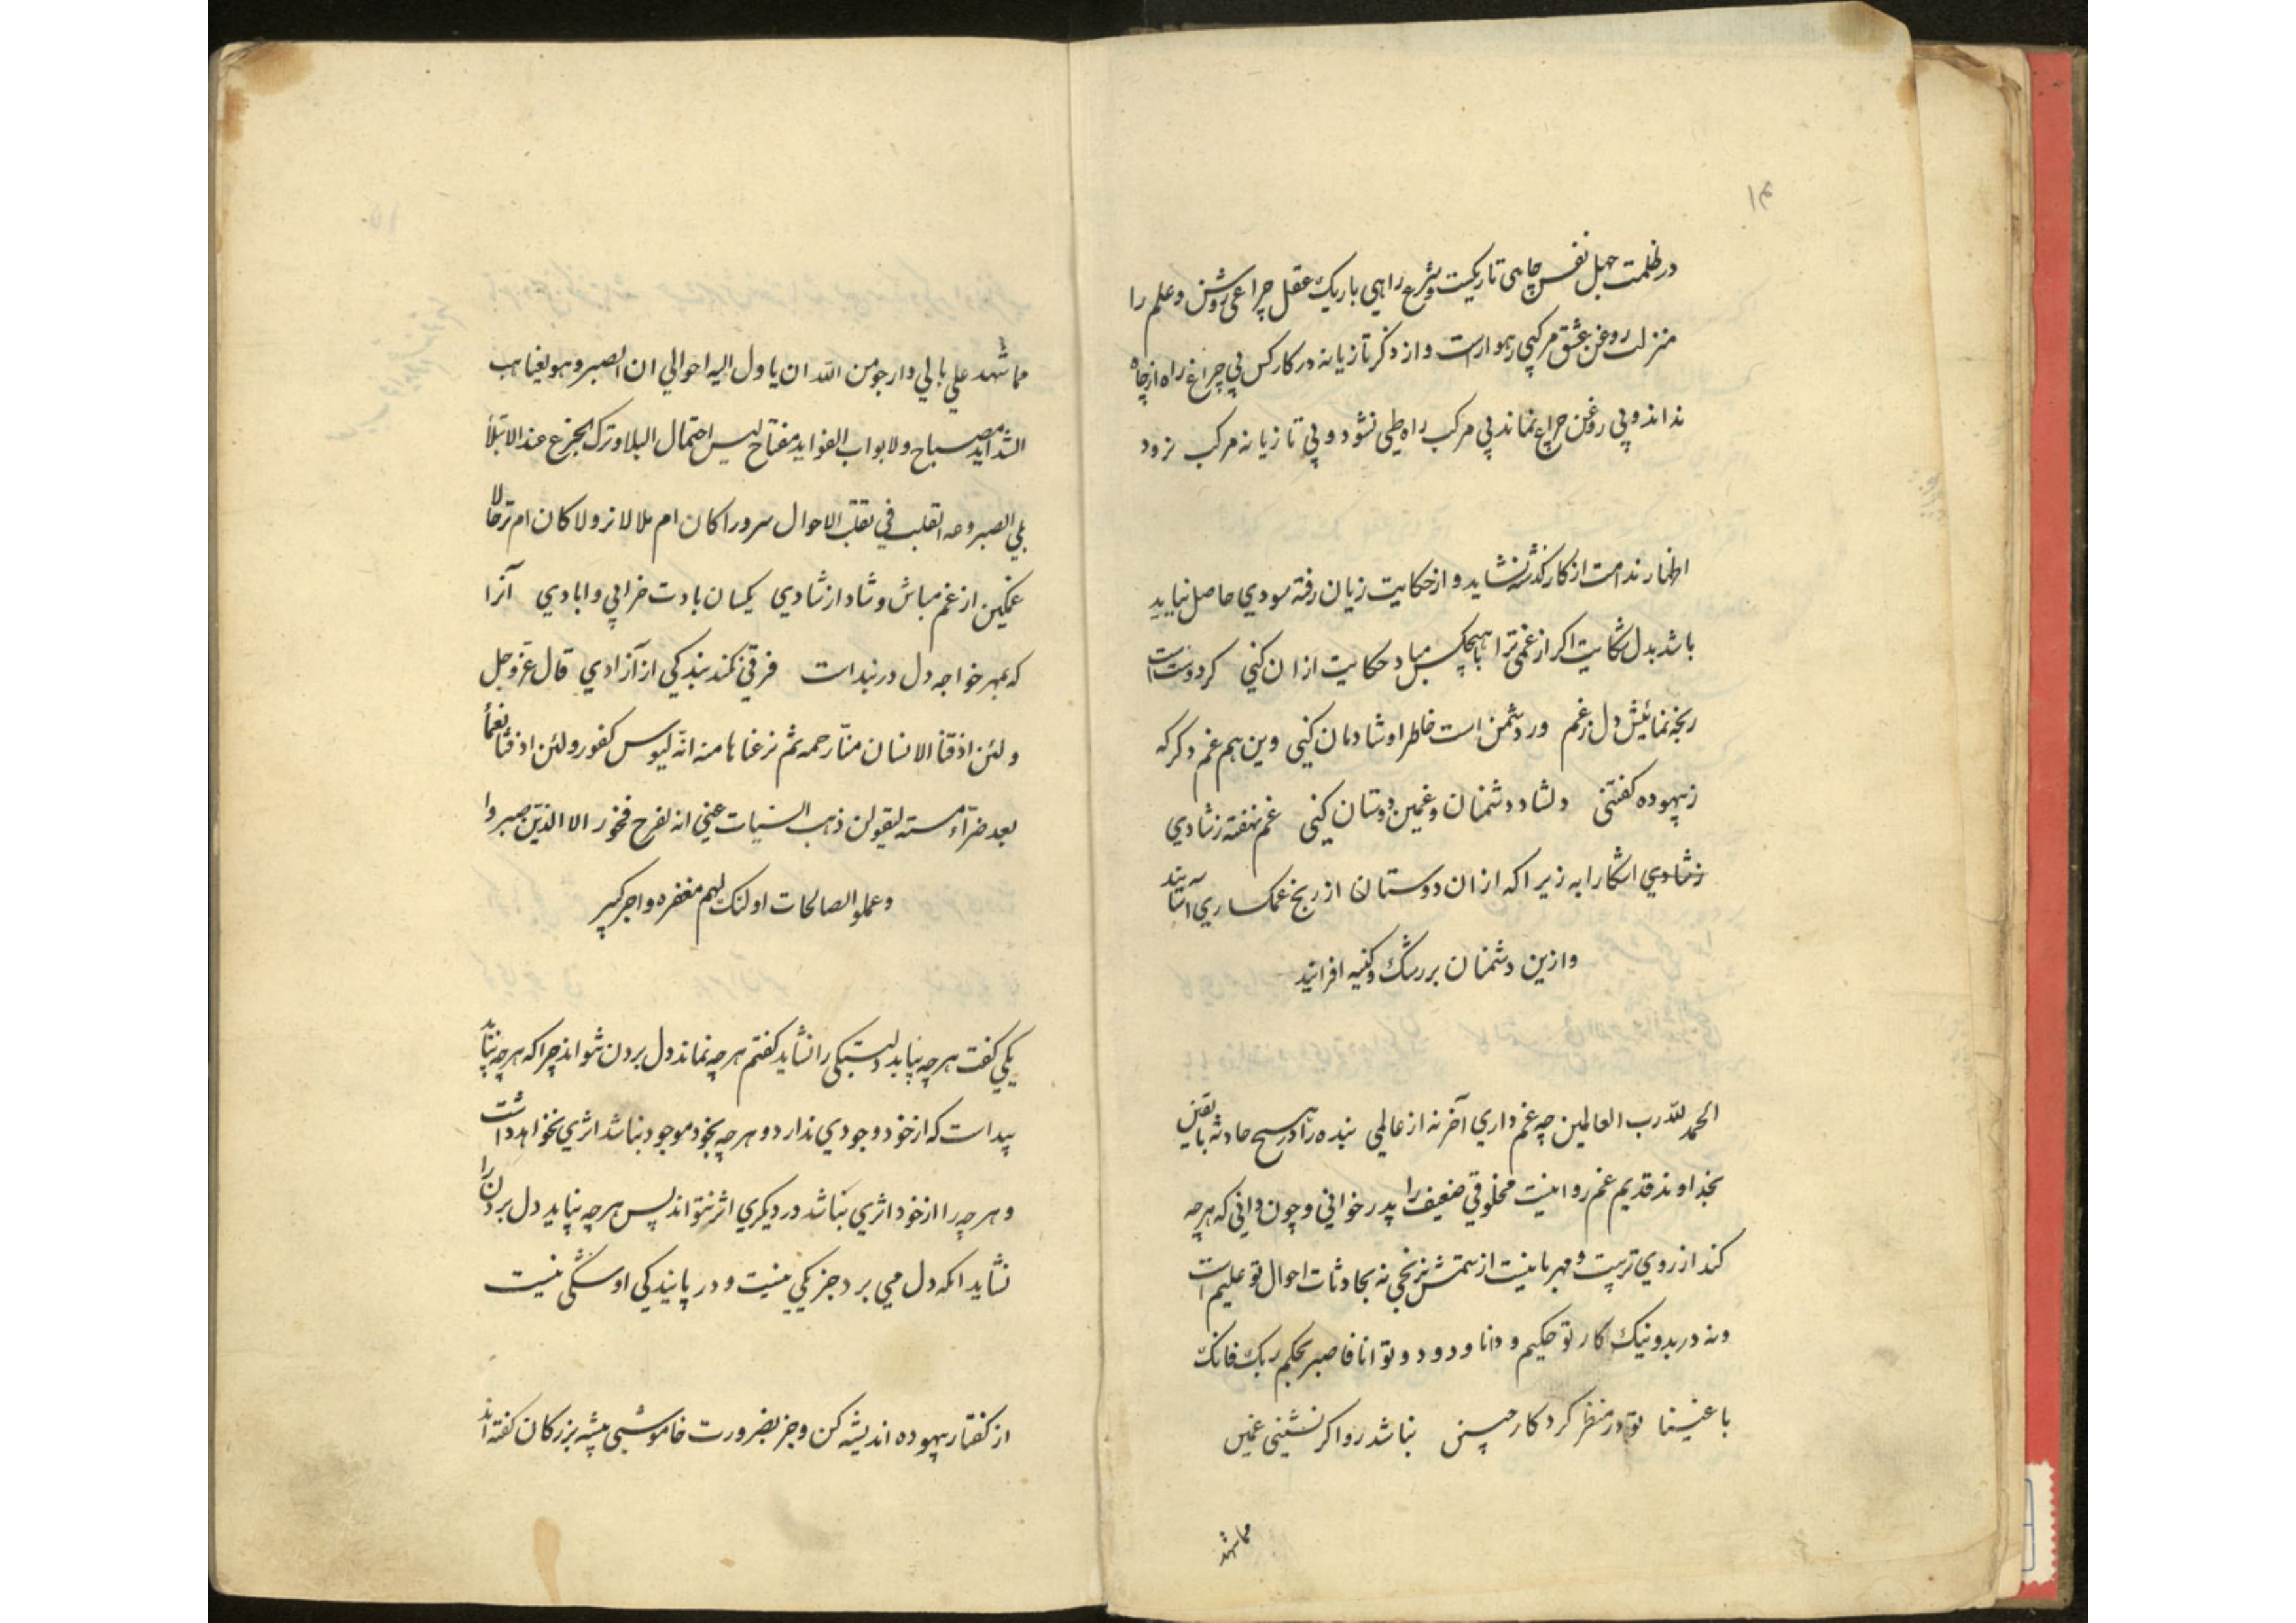 ۱۴
در ظلمت جهل نفس چاهی تاریکست و شرع راهی باریک عقل چراغی روشن و علم را
منزلت روغن عشق مرکبی رهوارست و از ذکر تازیانه در کار کس بی چراغ راه از چاه
نداند و بی روغن چراغ نماند بی مرکب راه طی نشود و بی تازیانه مرکب نرود
اظهار ندامت از کار گذشته نشاید و از حکایت زیان رفته سودي حاصل نیاید
باشد بدل شکایت اکر از غمی ترا با هیچکس مباد حکایت از ان کنی کر دوست است
رنجه نمائیش دل ز غم ور دشمن است خاطر او شادمان کنی وین هم غم دکر که
ز بیهوده کفتنی دلشاد دشمنان و غمین دوستان کنی غم نهفته ز شادي
ز شادي اشکارا به زیرا که از ان دوستان از رنج غمکساري آسایند
و ازین دشمنان بر رشک و کینه افزایند
الحمد لله رب العالمین چه غم داري آخر نه از عالمی بنده را در هیچ حادثه با یقین
بخداوند قدیم غم روا نیست مخلوقی ضعیف را پدر خوانی و چون دانی که هرچه
کند از روي تربیت و مهربانیست از ستمش نرنجی نه بحادثات احوال تو علیم است
و نه در بد و نیک کار تو حکیم و دانا و ودود و توانا فاصبر لحکم ربک فانک
باعیننا تو در منظر کردکار چنین نباشد روا کر نشینی غمین
مما شهد
مما شهد علي بالي وارجو من الله ان یاول الیه احوالي ان الصبر وهو لغیاهب
الشداید مصباح ولابواب الفواید مفتاح لیس احتمال البلا وترک الجزع عند الابتلأ
بلي الصبر وعه القلب في تقلب الاحوال سرورا کان ام ملالا نزولا کان ام ترحالا
غمکین از غم مباش و شاد از شادي یکسان بادت خرابي و ابادي آنرا
که بمهر خواجه دل در بند است فرقی نکند بندکي از آزادي قال عزّ وجل
ولئن اذقنا الانسان منّا رحمه ثم نزعناها منه انّه لیوس کفور ولئن اذقناه نعمأ
بعد ضرّاء مسته لیقولن ذهب السیات عني انه لفرح فخور الا الذین صبروا
وعملو الصالحات اولئک لهم مغفره واجر کبیر
یکي کفت هرچه نپاید دلبستکی را نشاید کفتم هرچه نماند دل بردن نتواند چرا که هرچه نپاید
پیداست که از خود وجودي ندارد و هرچه بخود موجود نباشد اثري نخواهد داشت
و هرچه را از خود اثري نباشد در دیکري اثر نتواند پس هرچه نپاید دل بردن را
نشاید انکه دل مي برد جز یکي نیست و در پایندکي او شکی نیست
از کفتار بیهوده اندیشه کن و جز بضرورت خاموشی پیشه بزرکان کفته اند